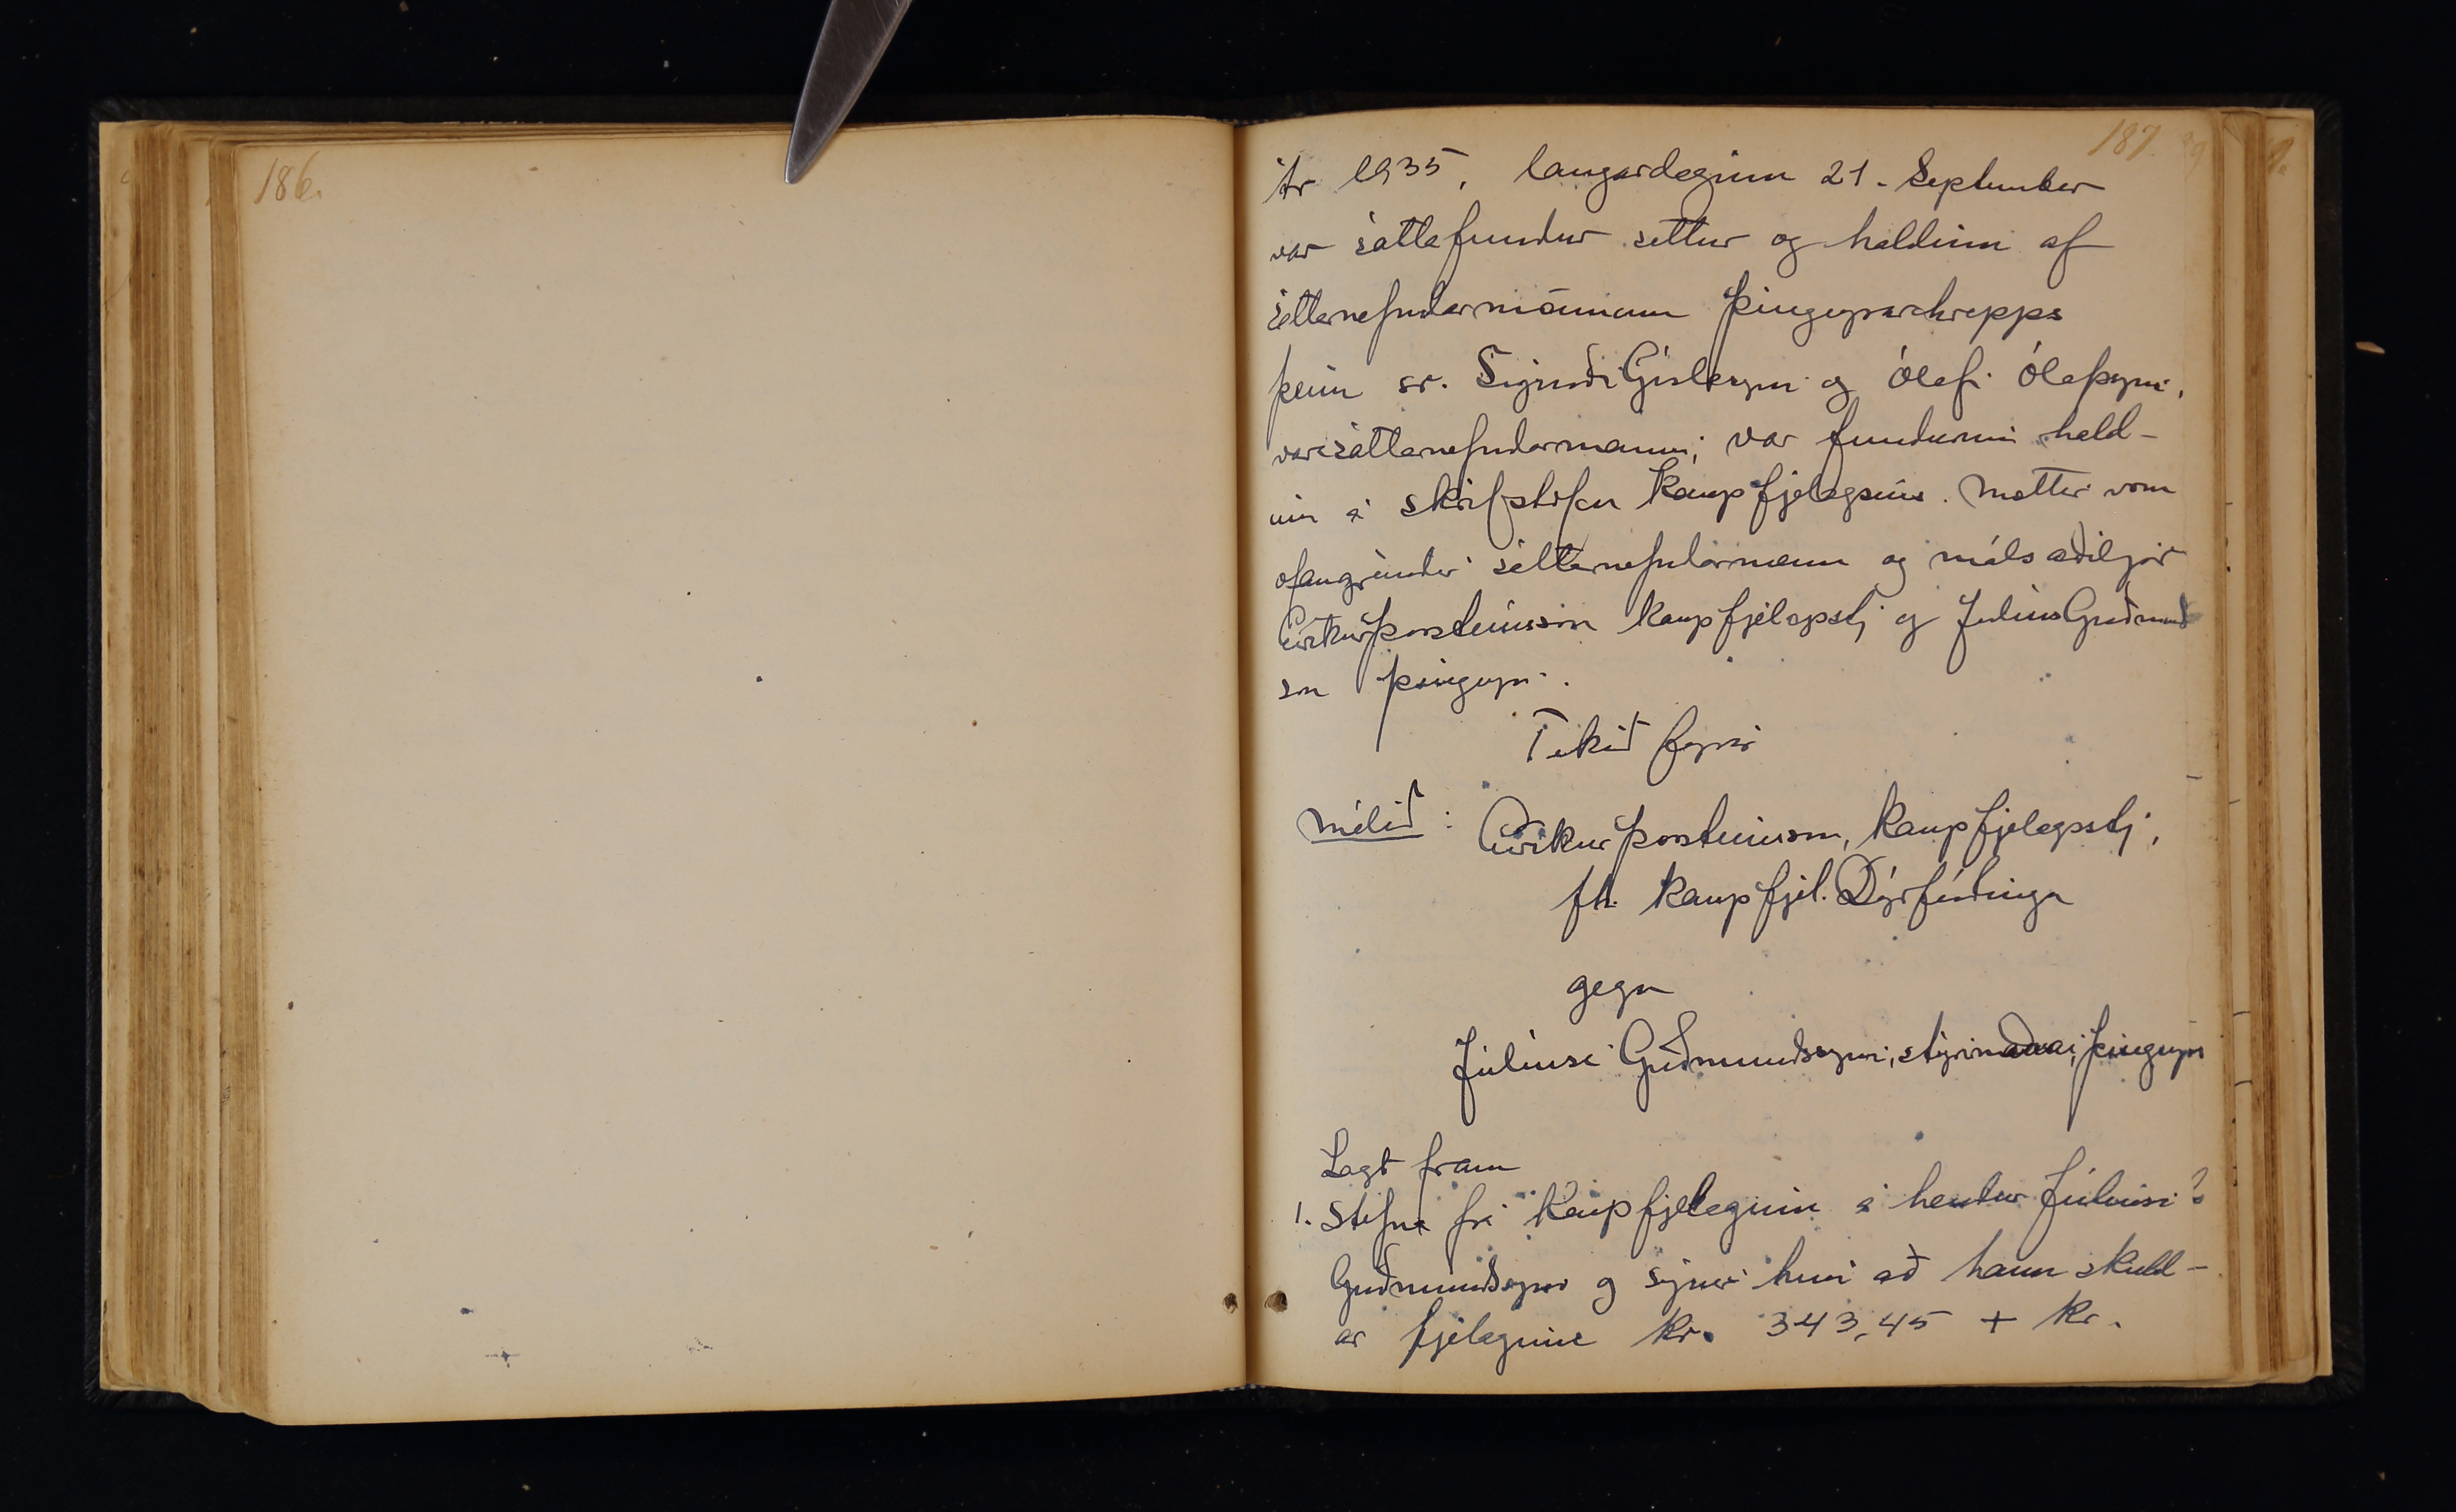 186.
187.
Ár 1935, laugardaginn 21. September
var sáttafundur settur og haldinn af
sáttanefndarmönnum Þingeyrarhrepps
þeim sr. Sigurði Gíslasyni og Ólafi Ólafssyni,
varasáttanefndarmanni; var fundurinn hald-
inn á skrifstofu Kaupfjelagsins. Mættir voru
ofangreindir sáttanefndarmenn og málsaðiljar
Eiríkur Þorsteinsson kaupfjelagsstj og Júlíus Guðmunds
son Þingeyri.
Tekið fyrir
Málið: Eiríkur Þorsteinsson, kaupfjelagsstj.,
fh. Kaupfjel. Dýrfirðinga
gegn
Júlíusi Guðmundssyni, stýrimanni, Þingeyri
Lagt fram
1. Stefna frá Kaupfjelaginu á hendur Júlíusi
Guðmundssyni og sýnir hún að hann skuld-
ar fjelaginu kr. 343,45 + kr.